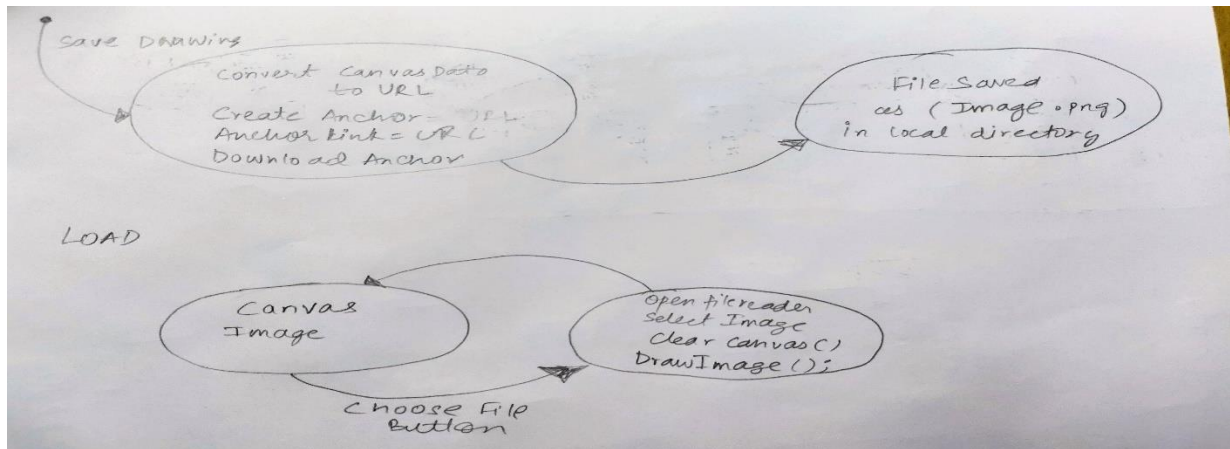 Save Drawing
Convert Canvas Data
to URL
Create Anchor = URL
Anchor Link = URL
Download Anchor
File Saved
as (Image.png)
in local directory
LOAD
Canvas
Image
Open filereader
Select Image
Clear Canvas()
DrawImage();
Choose File
Button